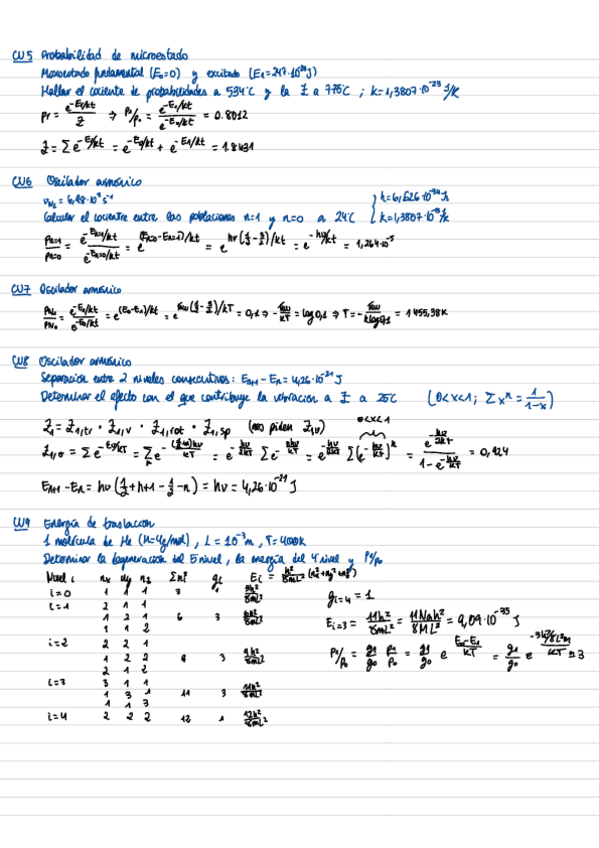 CU5 Probabilidad de microestado
Microestado fundamental (E₀=0) y excitado (E₁=2'47·10⁻²¹J)
Hallar el cociente de probabilidades a 534ºC y la Z a 775ºC ; k=1,3807·10⁻²³ J/K
pr = e^(-Er/kt)/Z ⇒ p₁/p₀ = e^(-E₁/kt)/e^(-E₀/kt) = 0.8012
Z = Σe^(-Er/kt) = e^(-E₀/kt) + e^(-E₁/kt) = 1.8431
CU6 Oscilador armónico
k=6,626·10⁻³⁴ Js
Calcular el cociente entre las poblaciones n=1 y n=0 a 24ºC
pn=1/pn=0 = e^(-En=1/kt)/e^(-En=0/kt) = e^((En=0-En=1)/kt) = e^(hν(1/2-3/2)/kt) = e^(-hν/kt) = 1,264·10⁻⁵
CU7 Oscilador armónico
= 0,1 ⇒ = log 0,1 ⇒ T = = 1455,38K
CU8 Oscilador armónico
Separación entre 2 niveles consecutivos: En+1 - En = 4,26·10⁻²¹ J
Determinar el efecto con el que contribuye la vibración a Z a 25ºC (0<x<1; Σxⁿ = 1/(1-x))
0<x<1
Z₁ = Z₁,tr · Z₁,v · Z₁,rot · Z₁,sp (nos piden Z₁,v)
= e^(-hν/2kT) Σ e^(-nhν/kT) = e^(-hν/2kT) Σ(e^(-hν/kT))ⁿ = e^(-hν/2kT)/(1-e^(-hν/kT)) = 0,924
En+1 - En = hν(1/2+n+1-1/2-n) = hν = 4,26·10⁻²¹ J
CU9 Energía de traslación
1 molécula de He (M=4g/mol), L = 10⁻³m, T=4000K
Determinar la degeneración del 5 nivel, la energía del 4 nivel y p₁/p₀
Nivel i nx ny nz Σni² gi Ei = h²/8mL² (nx²+ny²+nz²)
i=0 1 1 1 3 1 3h²/8mL²
i=1 2 1 1
1 2 1 6 3 6h²/8mL²
1 1 2
i=2 2 2 1
1 2 2 9 3 9h²/8mL²
2 1 2
i=3 3 1 1
1 3 1 11 3 11h²/8mL²
1 1 3
i=4 2 2 2 12 1 12h²/8mL²
gi=4 = 1
Ei=3 = 11h²/8mL² = 11Nah²/8ML² = 9,09·10⁻³⁵ J